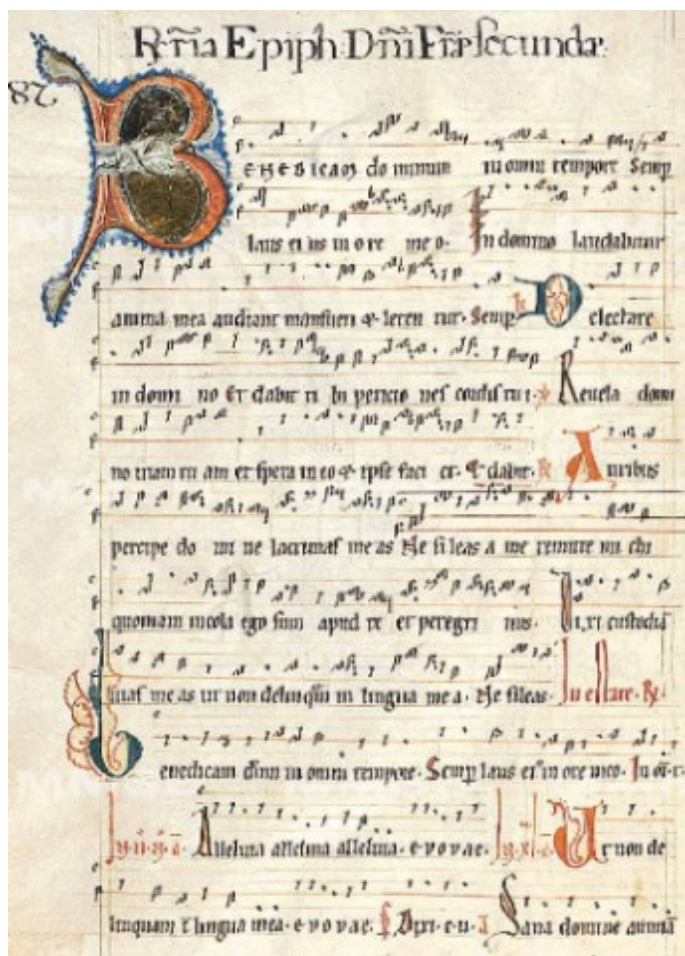 Epiph. Dñi secunda
BENEDICAM dominum in omni tempore Semp
laus eius in ore meo. In domino laudabitur
anima mea audiant mansueti & leten tur. Semp. Delectare
in domi no Et dabit ti bi peticio nes cordis tui. Revela domi
no viam tu am et spera in eo & ipse faci et. Et dabit. Auribus
percipe do mi ne lacrimas me as Ne si leas a me remitte mi chi
quoniam incola ego sum apud te et peregri nus. Dixi custodiā
vias me as ut non delinquā in lingua me a. Ne sileas.
enedicam dñm in omni tempore. Semp laus eiꝰ in ore meo. In
Alleluia alleluia alleluia. evovae. Ut non de
linquam lingua mea. evovae. Dixi Sana domine animā